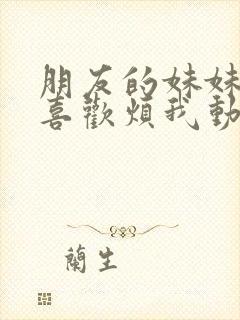 朋友的妹妹
喜歡煩我動
蘭生